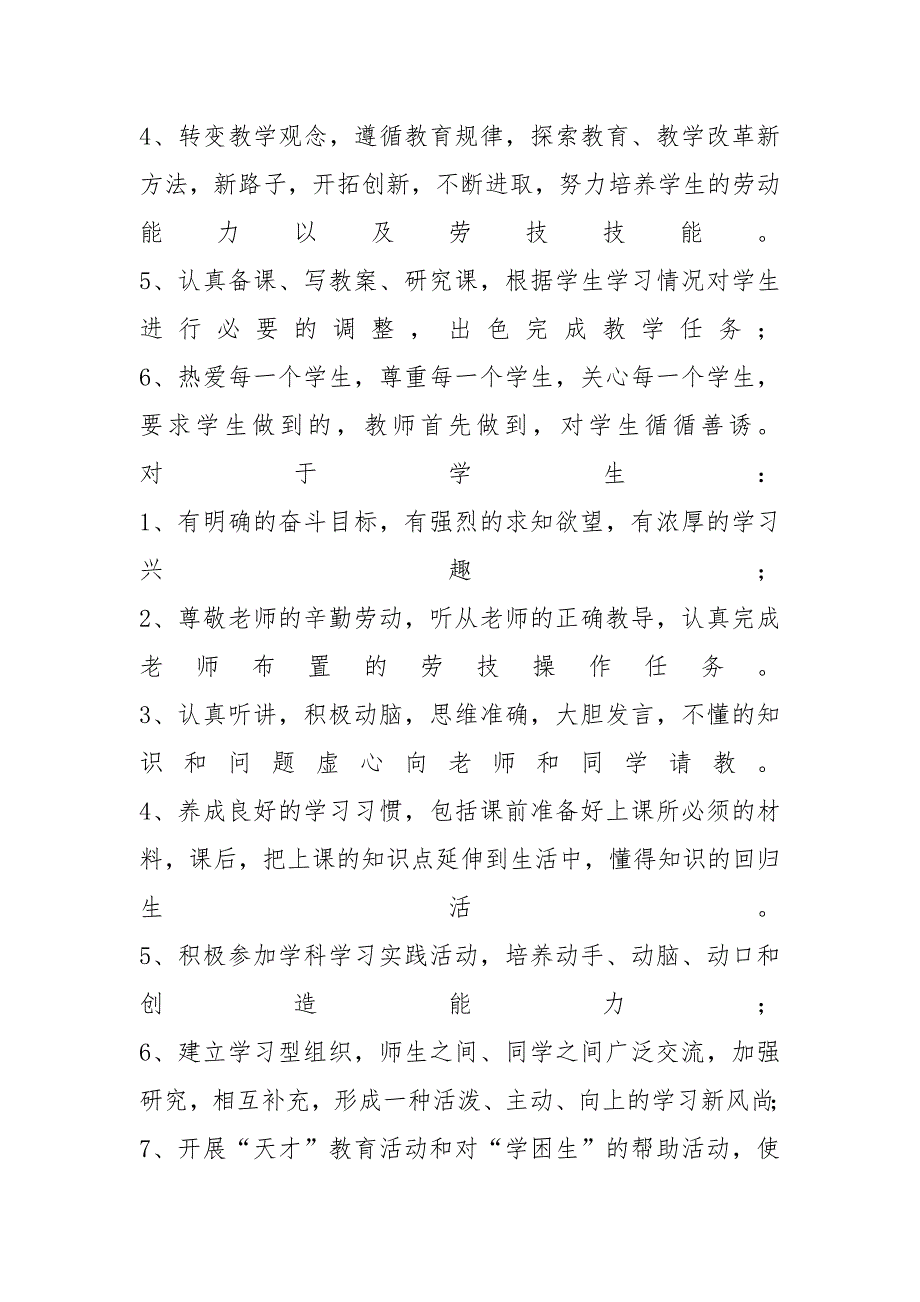 4、转变教学观念，遵循教育规律，探索教育、教学改革新
方法，新路子，开拓创新，不断进取，努力培养学生的劳动
能力以及劳技技能。
5、认真备课、写教案、研究课，根据学生学习情况对学生
进行必要的调整，出色完成教学任务；
6、热爱每一个学生，尊重每一个学生，关心每一个学生，
要求学生做到的，教师首先做到，对学生循循善诱。
对于学生：
1、有明确的奋斗目标，有强烈的求知欲望，有浓厚的学习
兴趣；
2、尊敬老师的辛勤劳动，听从老师的正确教导，认真完成
老师布置的劳技操作任务。
3、认真听讲，积极动脑，思维准确，大胆发言，不懂的知
识和问题虚心向老师和同学请教。
4、养成良好的学习习惯，包括课前准备好上课所必须的材
料，课后，把上课的知识点延伸到生活中，懂得知识的回归
生活。
5、积极参加学科学习实践活动，培养动手、动脑、动口和
创造能力；
6、建立学习型组织，师生之间、同学之间广泛交流，加强
研究，相互补充，形成一种活泼、主动、向上的学习新风尚；
7、开展“天才”教育活动和对“学困生”的帮助活动，使